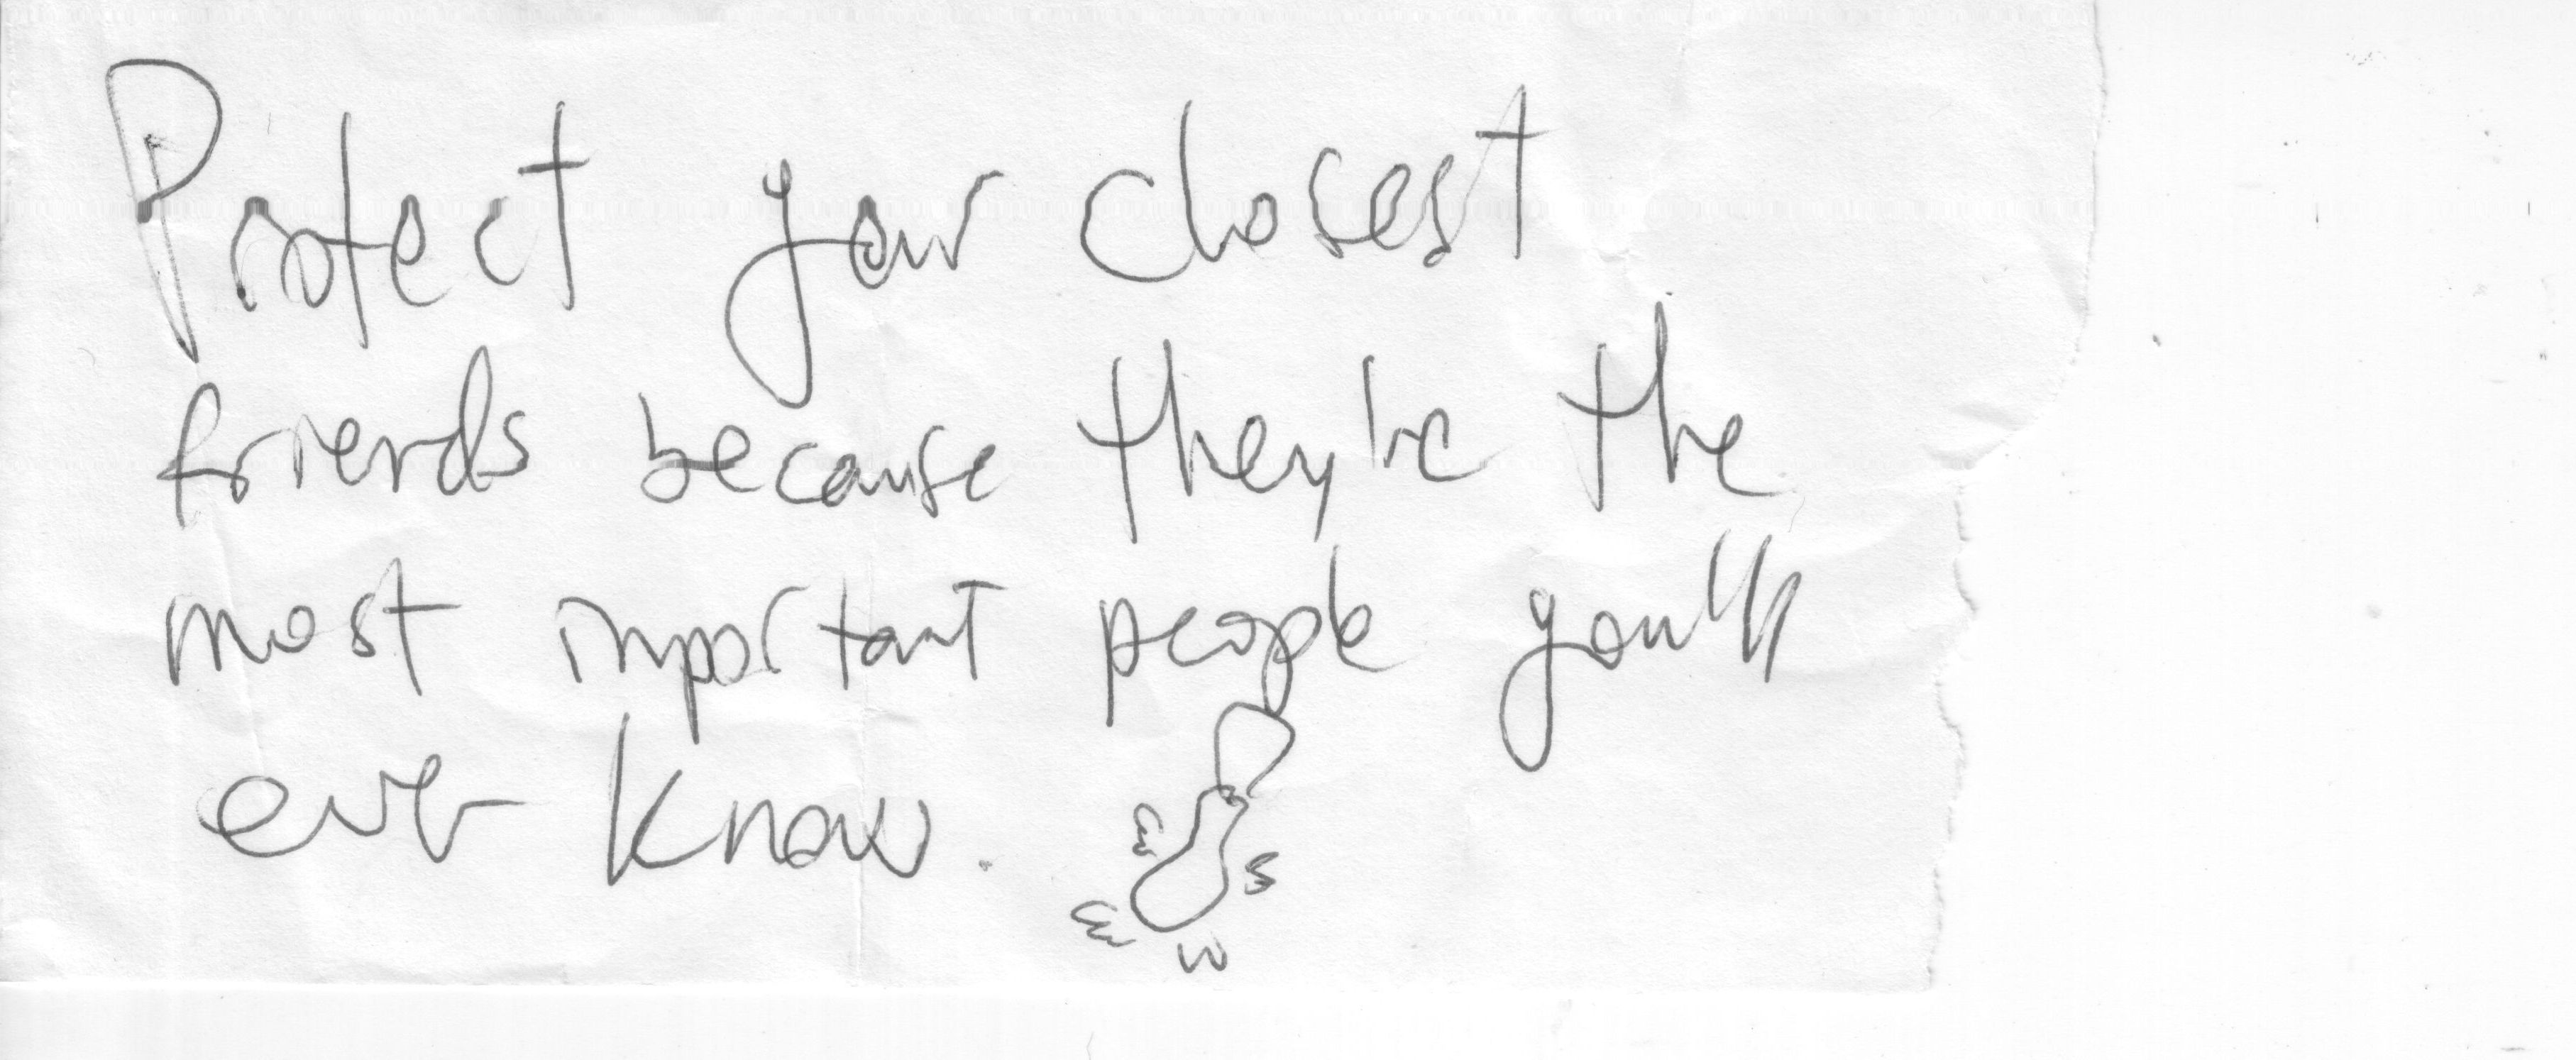 Protect your closest
friends because they're the
most important people you'll
ever know.